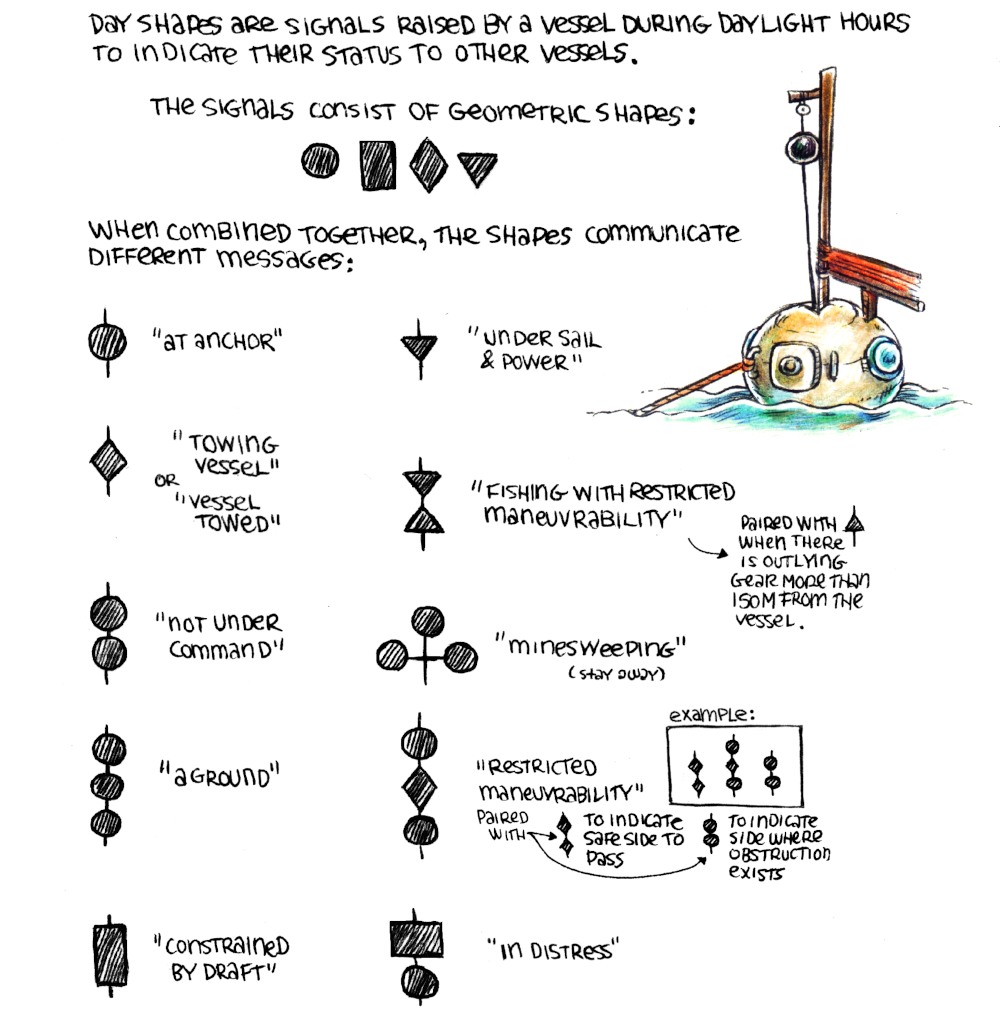 DAY SHAPES ARE SIGNALS RAISED BY A VESSEL DURING DAYLIGHT HOURS
TO INDICATE THEIR STATUS TO OTHER VESSELS.
THE SIGNALS CONSIST OF GEOMETRIC SHAPES:
WHEN COMBINED TOGETHER, THE SHAPES COMMUNICATE
DIFFERENT MESSAGES:
"AT ANCHOR"
"UNDER SAIL
& POWER"
"TOWING
VESSEL"
OR
"VESSEL
TOWED"
"FISHING WITH RESTRICTED
MANEUVRABILITY"
PAIRED WITH
WHEN THERE
IS OUTLYING
GEAR MORE THAN
150M FROM THE
VESSEL.
"NOT UNDER
COMMAND"
"MINESWEEPING"
(STAY AWAY)
"AGROUND"
"RESTRICTED
MANEUVRABILITY"
EXAMPLE:
PAIRED
WITH
TO INDICATE
SAFE SIDE TO
PASS
TO INDICATE
SIDE WHERE
OBSTRUCTION
EXISTS
"CONSTRAINED
BY DRAFT"
"IN DISTRESS"